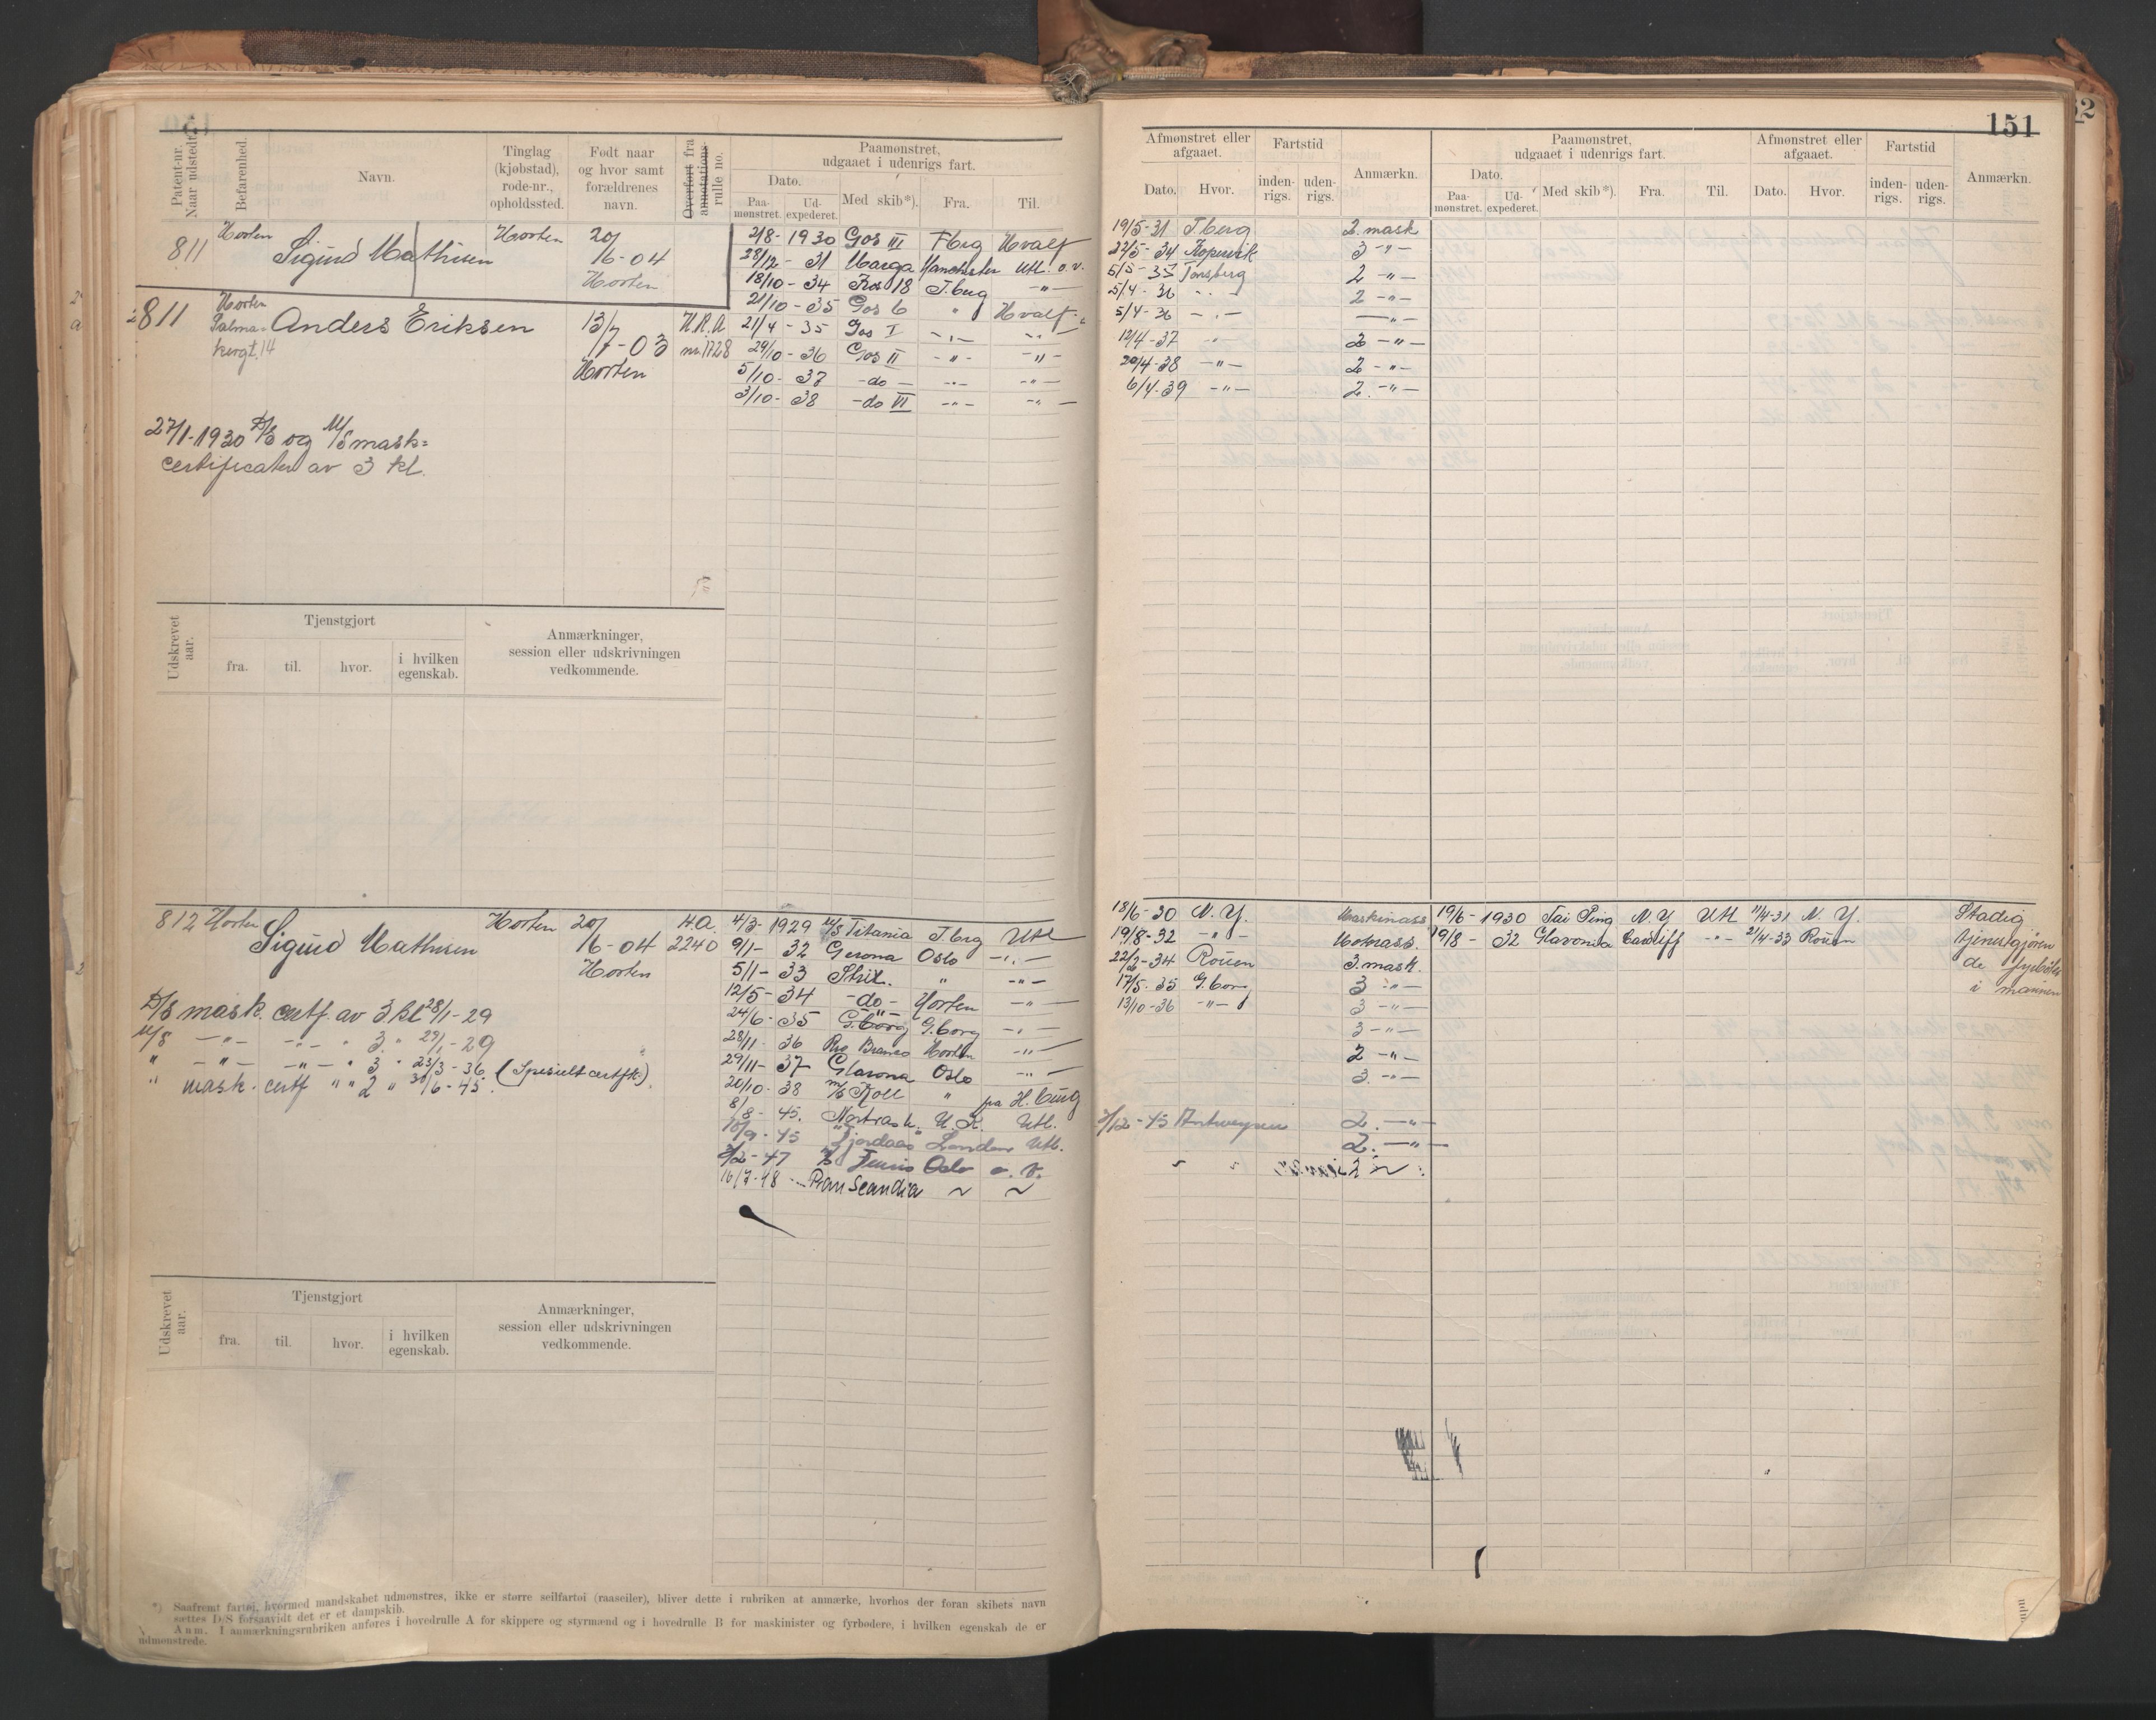 151
Patent-nr. Naar udstedt.
Befarenhed.
Navn.
Tinglag (kjøbstad), rode-nr., opholdssted.
Født naar og hvor samt forældrenes navn.
Overført fra annotations-rulle no.
Paamønstret, udgaaet i udenrigs fart.
Dato.
Paa-mønstret.
Ud-expederet.
Med skib*).
Fra.
Til.
Afmønstret eller afgaaet.
Dato.
Hvor.
Fartstid
inden-rigs.
uden-rigs.
Anmærkn.
Paamønstret, udgaaet i udenrigs fart.
Dato.
Paa-mønstret.
Ud-expederet.
Med skib*).
Fra.
Til.
Afmønstret eller afgaaet.
Dato.
Hvor.
Fartstid
inden-rigs.
uden-rigs.
Anmærkn.
811 Horten Sigurd Mathisen Horten 20/
16-04
Horten
811 Horten
Anders Eriksen 13/ H.R.A
7-03 nr. 1728
Horten
27/1-1930 D/S og M/S mask=
certifikater av 3 kl.
2/8- 1930 Gos III T.berg Hvalf 19/5-31 T.berg 2. mask
28/12- 31 Marga Manchester Utl. o.v. 22/5-34 Kopervik 3 -"-
18/10- 34 Kos 18 T.berg -"- 5/5-35 Tønsberg 2 -"-
21/10- 35 Gos 6 " Hvalf 5/4-36 -"- 2 -"-
21/4- 35 Gos I -"- -"- 5/4-36 -"- -"-
29/10- 36 Gos II -"- -"- 12/4-37 " 2 -"-
5/10- 37 -do- -"- -"- 20/4-38 -"- 2 -"-
3/10- 38 -do VI -"- -"- 6/4-39 -"- 2 -"-
Udskrevet aar.
Tjenstgjort
fra.
til.
hvor.
i hvilken egenskab.
Anmærkninger,
session eller udskrivningen
vedkommende.
812 Horten Sigurd Mathisen Horten 20/ H.A.
16-04 2240
Horten
D/S mask. certf. av 3 kl 28/1-29
M/S -"- -"- " 3 " 29/1-29
" -"- -"- " 3 " 23/3-36 (Spesielt certfk.)
" mask. certf " " 2 " 30/6-45.
4/3- 1929 M/S Titania T.berg Utl 18/6-30 N.Y. Maskinass 19/6- 1930 Tai Ping N.Y Utl 11/4-31 N.Y. Stadig
9/1- 32 Gerona Oslo -"- 19/8-32 -"- Motorass. 19/8- 32 Glavonia Cardiff -"- 21/4-33 Rouen tjenestgjøren
5/1- 33 Strix. " -"- 22/2-34 Rouen 3. mask. de fyrbøter
12/5- 34 -do- Horten -"- 17/5-35 G.borg 3 -"- i marinen
24/6- 35 G.borg G.borg -"- 13/10-36 -"- 3 -"-
28/11- 36 Rio Branco Horten -"- 3 -"-
29/11- 37 Glarona Oslo -"- 2 -"-
20/10- 38 M/S Koll " fra H.burg 3. -"-
8/8- 45. U.K. Utl. 3/12-45 Antwerpen 2. -"-
10/9- 45 "Fjordaas" London Utl. 2. -"-
3/2- 47 Oslo o.v.
16/7-48 Pan Scandia ~ ~
Udskrevet aar.
Tjenstgjort
fra.
til.
hvor.
i hvilken egenskab.
Anmærkninger,
session eller udskrivningen
vedkommende.
*) Saafremt fartøi, hvormed mandskabet udmønstres, ikke er større seilfartøi (raaseiler), bliver dette i rubriken at anmærke, hvorhos der foran skibets navn
sættes D/S forsaavidt det er et dampskib.
Anm. I anmærkningsrubriken anføres i hovedrulle A for skippere og styrmænd og i hovedrulle B for maskinister og fyrbødere, i hvilken egenskab de er
udmønstrede.